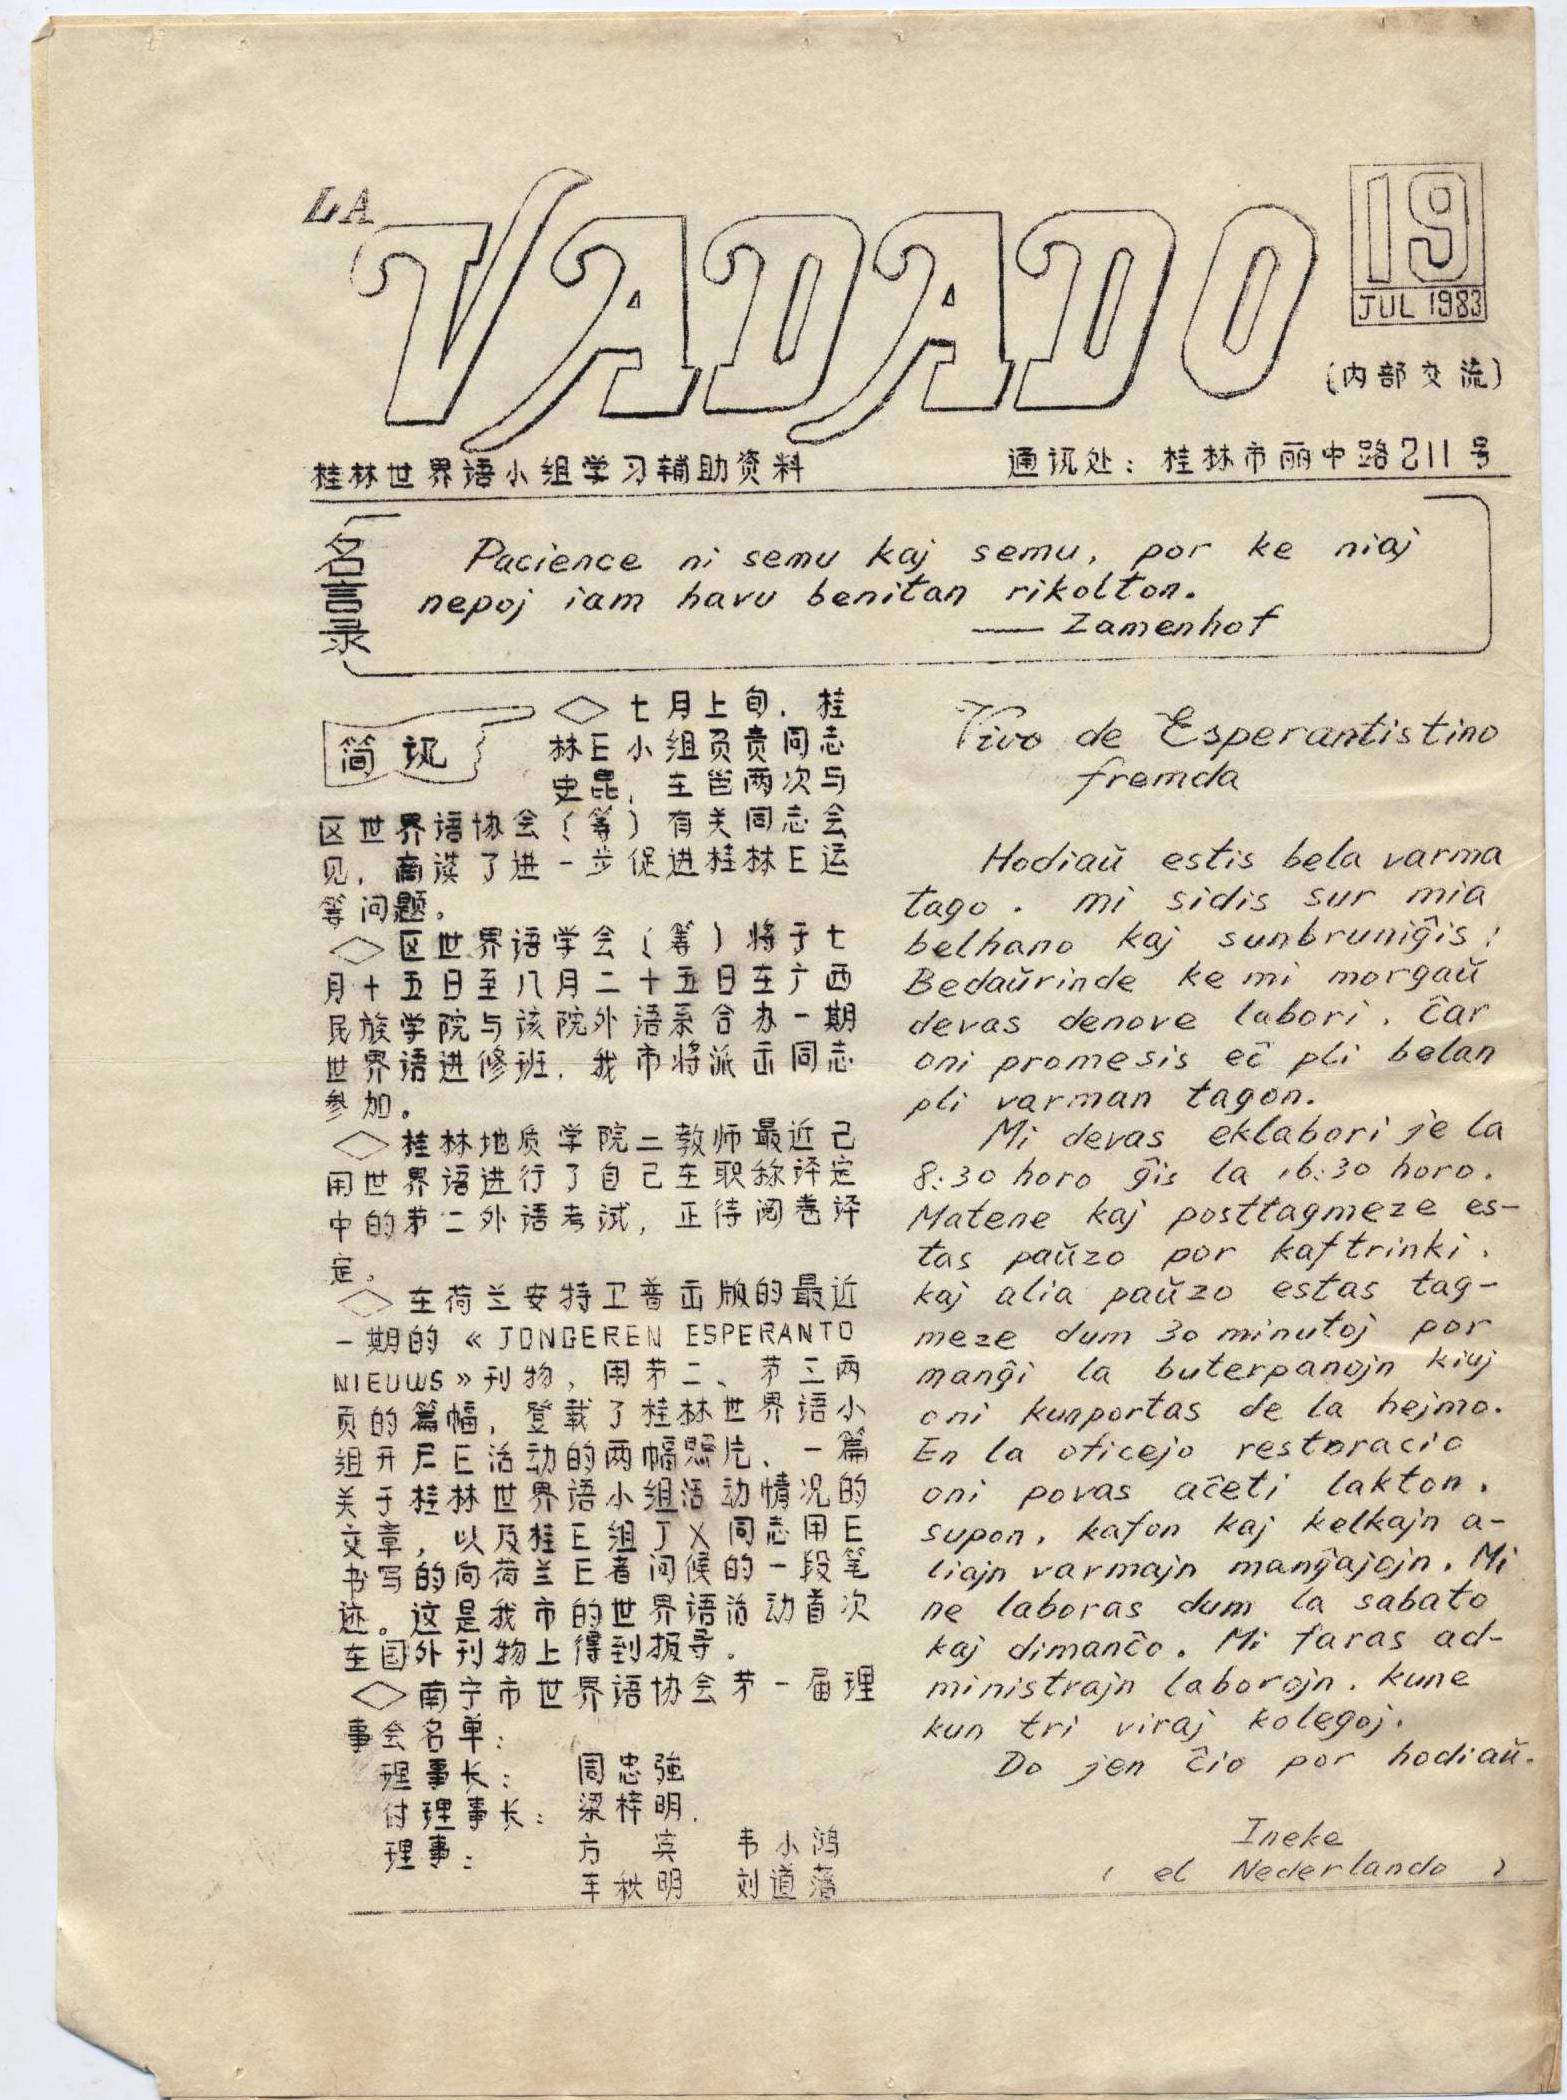 LA
VADADO
19
JUL 1983
(内部交流)
桂林世界语小组学习辅助资料
通讯处：桂林市丽中路211号
名言录
Pacience ni semu kaj semu, por ke niaj
nepoj iam havu benitan rikolton.
—— Zamenhof
简讯
◇七月上旬，桂
林E小组负责同志
史昆，在邕两次与
区世界语协会（筹）有关同志会
见，商谈了进一步促进桂林E运
等问题。
◇区世界语学会（筹）将于七
月十五日至八月二十五日在广西
民族学院与该院外语系合办一期
世界语进修班，我市将派出同志
参加。
◇桂林地质学院二教师最近已
用世界语进行了自己在职称评定
中的第二外语考试，正待阅卷评
定。
◇在荷兰安特卫普出版的最近
一期的《JONGEREN ESPERANTO
NIEUWS》刊物，用第二、第三两
页的篇幅，登载了桂林世界语小
组开展E活动的两幅照片、一篇
关于桂林世界语小组活动情况的
文章，以及桂E组丁义同志用E
书写的向荷兰E者问候的一段笔
迹。这是我市的世界语活动首次
在国外刊物上得到报导。
◇南宁市世界语协会第一届理
事会名单：
理事长： 周忠强
付理事长：梁梓明.
理事： 方 宾 韦小鸿
车秋明 刘道藩
Vivo de Esperantistino
fremda
Hodiaŭ estis bela varma
tago. mi sidis sur mia
belhano kaj sunbruniĝis!
Bedaŭrinde ke mi morgaŭ
devas denove labori, ĉar
oni promesis eĉ pli belan
pli varman tagon.
Mi devas eklabori je la
8:30 horo ĝis la 16:30 horo.
Matene kaj posttagmeze es-
tas paŭzo por kaftrinki,
kaj alia paŭzo estas tag-
meze dum 30 minutoj por
manĝi la buterpanojn kiuj
oni kunportas de la hejmo.
En la oficejo restoracio
oni povas aĉeti lakton,
supon, kafon kaj kelkajn a-
liajn varmajn manĝajojn. Mi
ne laboras dum la sabato
kaj dimanĉo. Mi faras ad-
ministrajn laborojn, kune
kun tri viraj kolegoj.
Do jen ĉio por hodiaŭ.
Ineke
( el Nederlando )